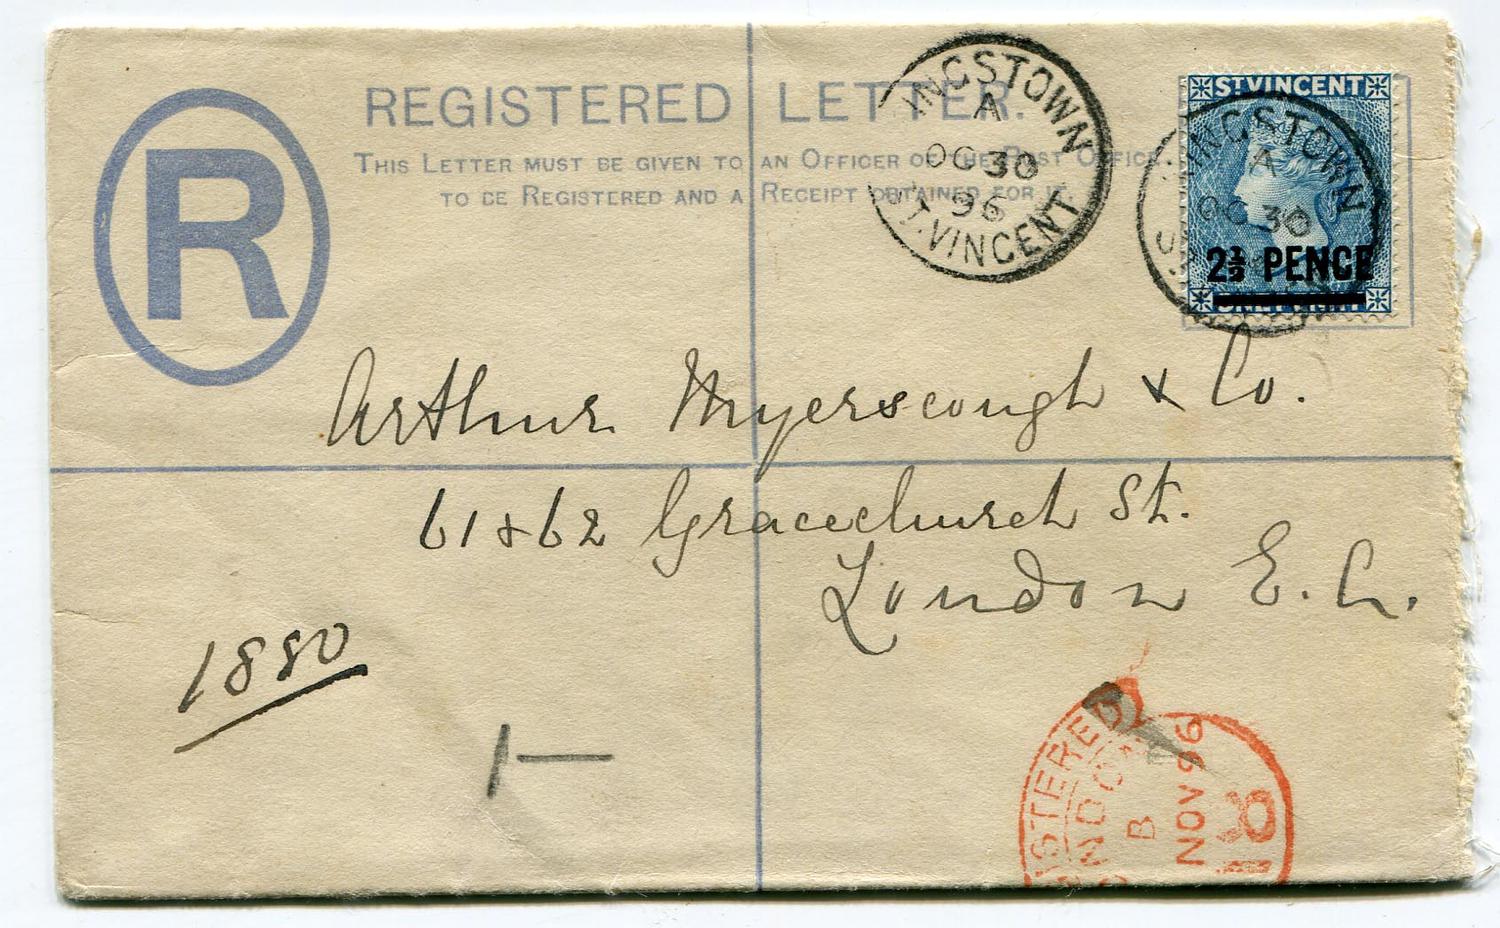 REGISTERED LETTER.
THIS LETTER MUST BE GIVEN TO AN OFFICER OF THE POST OFFICE
TO BE REGISTERED AND A RECEIPT OBTAINED FOR IT.
R
INGSTOWN
A
OC 30
96
ST. VINCENT
ST VINCENT
INGSTOWN
A
OC 30
2½ PENCE
Arthur Myerscough & Co.
61 & 62 Gracechurch St.
London E.C.
1880
1—
ISTERED
NDON
B
NOV 96
18